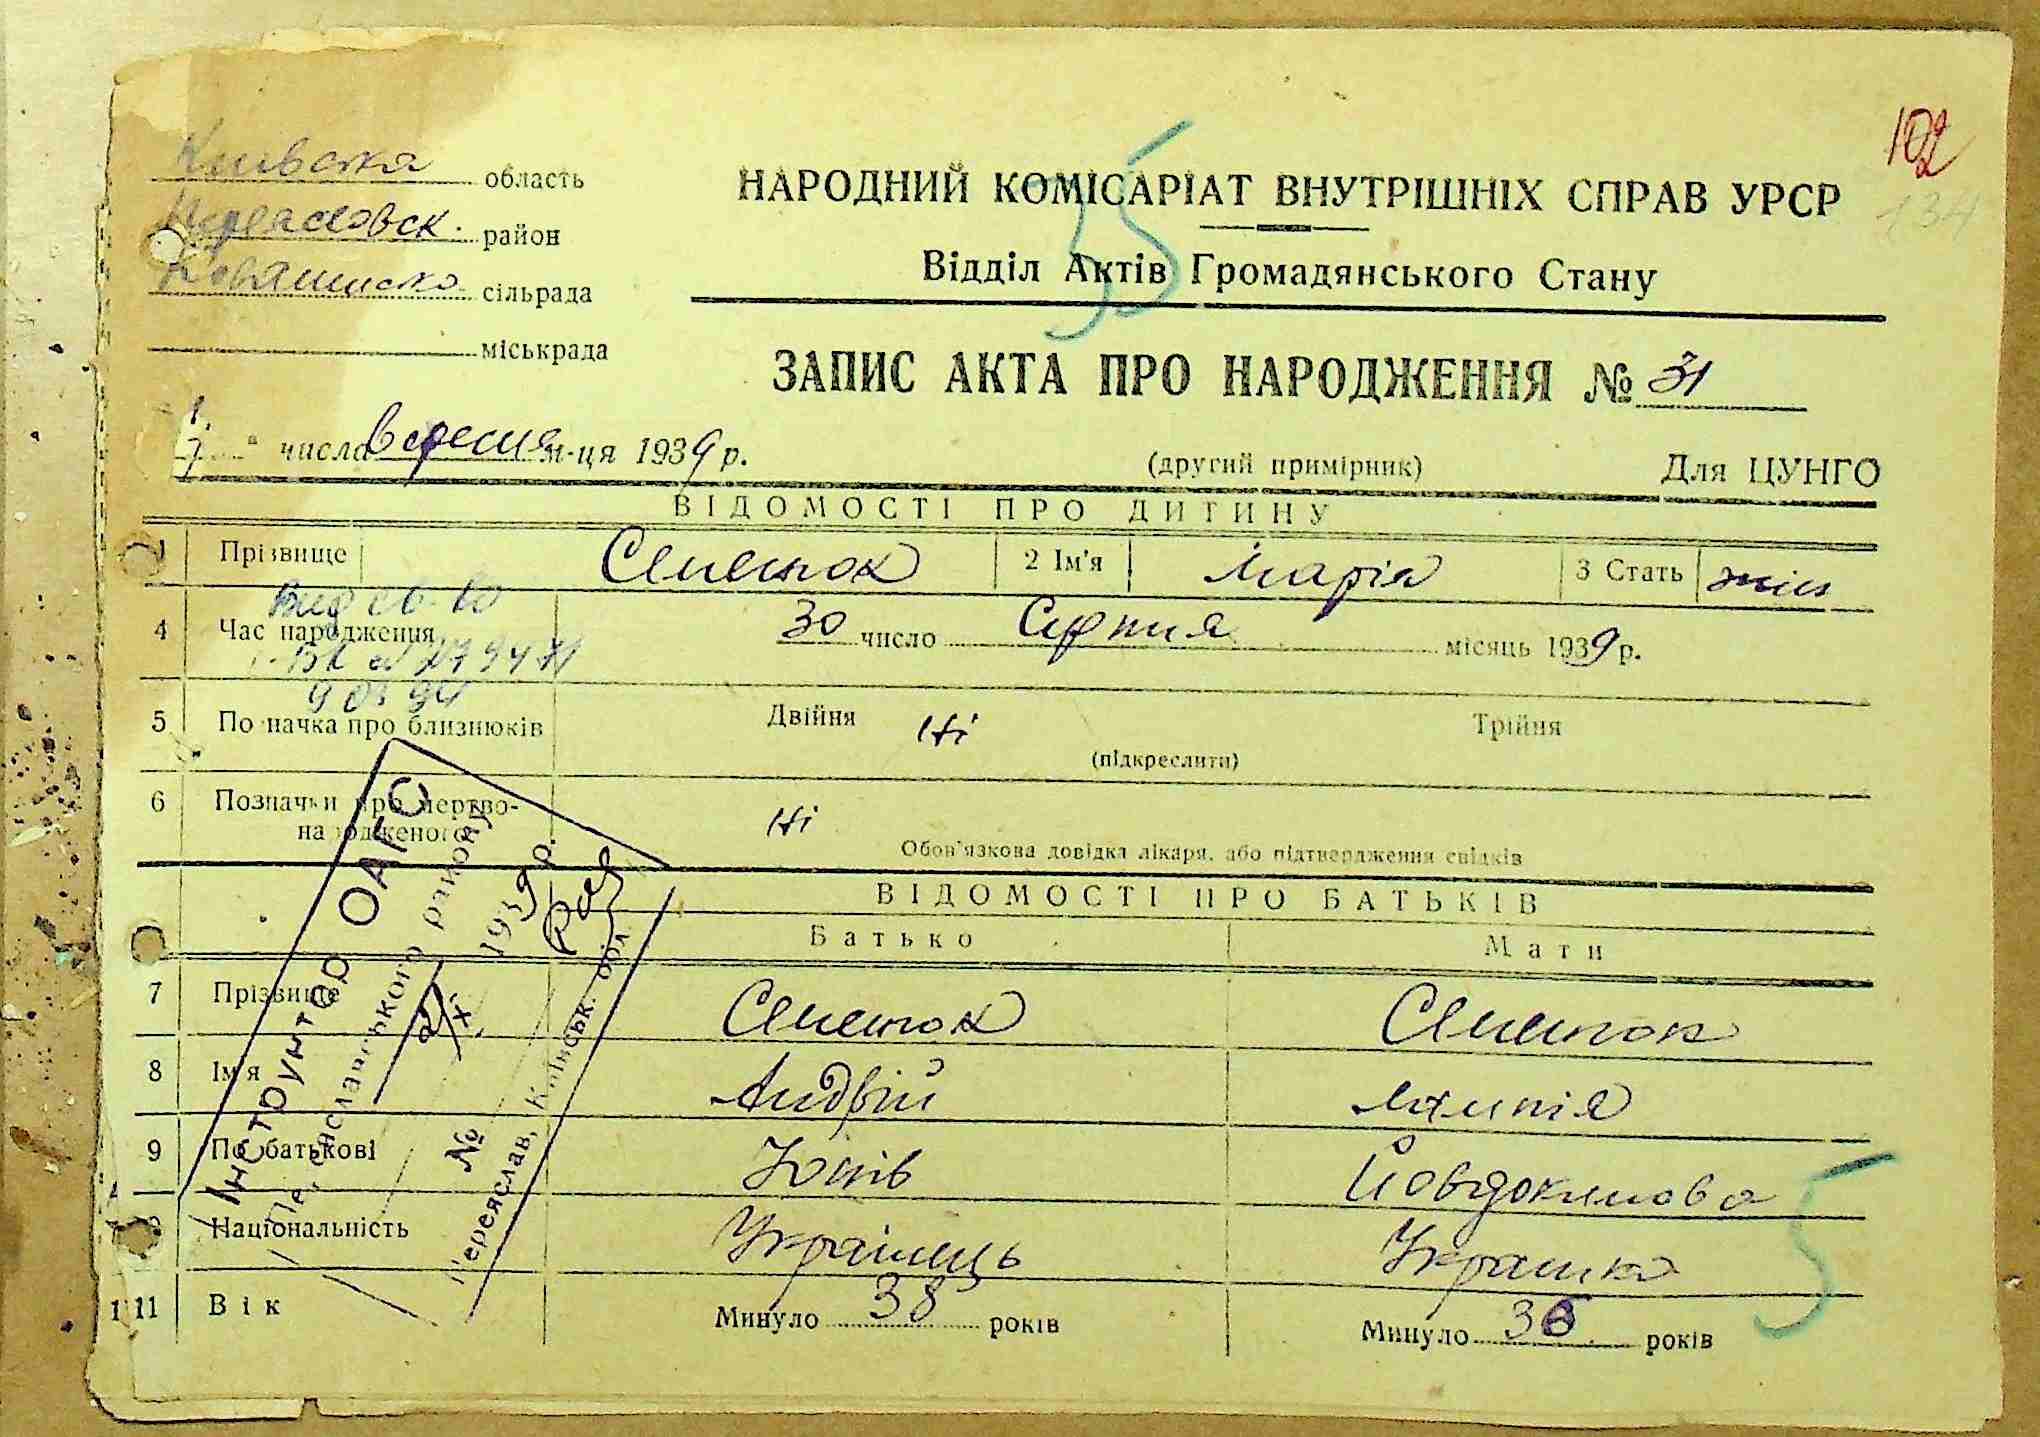 Київська область
102
134
Переясловск. район
сільрада
міськрада
НАРОДНИЙ КОМІСАРІАТ ВНУТРІШНІХ СПРАВ УРСР
Відділ Актів Громадянського Стану
ЗАПИС АКТА ПРО НАРОДЖЕННЯ № 31
числа вересня м-ця 1939 р.
(другий примірник)
Для ЦУНГО
ВІДОМОСТІ ПРО ДИТИНУ
1 Прізвище Семенюк 2 Ім'я Марія 3 Стать жін
4 Час народження 30 число Серпня місяць 1939 р.
5 Позначка про близнюків Двійня Ні Трійня
(підкреслити)
6 Позначки про мертво-
народженого Ні
Обов'язкова довідка лікаря, або підтвердження свідків
ВІДОМОСТІ ПРО БАТЬКІВ
Батько Мати
7 Прізвище Семенюк Семенюк
8 Ім'я Андрій
9 По батькові Йовдокимова
10 Національність Українець Українка
11 Вік Минуло 38 років Минуло 36 років
Інструктор ОАГС
Переяславського району
1939 р.
№
Переяслав, Київськ. обл.